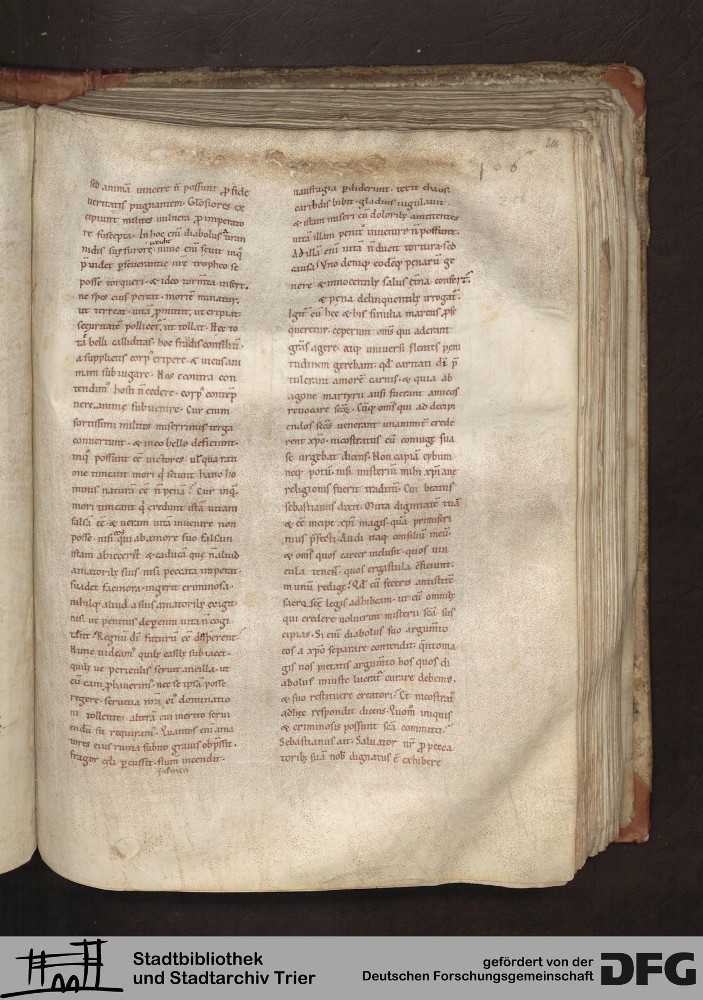 216
106
sed animā uincere n̄ possunt ꝓ fide
ueritatis pugnantem. Gl̄osiores ex
cipiunt milites uulnera ꝓ imperato
re suscepta. In hoc enī diabolus
suo furore nunc enī seuit inq̄
posse torqueri. & ideo torm̄ta inserit.
ne spes eius pereat. mortē minatur.
ut terreat. uitā ꝓmittit. ut eripiat.
securitatē pollicet᷑. ut tollat. Hec to
ta belli calliditas. hoc fraudis consiliū.
a suppliciis corpꝰ eripere. & uicus ani
mam subiugare. Nos econtra con
tendimꝰ hosti n̄ cedere. corpꝰ contēp
nere. animę subuenire. Cur enim
fortissimi milites miserrimis terga
conuertunt. & in eo bello deficiunt.
inq̄ possunt eē uictores. ul̓ qua rati
one timeant mori q̄ sciunt hanc ho
minis naturā eē n̄ pena? Cur inq̄.
mori timeant q̄ credunt istā uitam
falsā eē. & ueram uitā inuenire non
posse. nisi qui ab amore suo falsam
istam abiecerit. & caducā quę n̄ aliud
amatorib; suis nisi peccata imperat.
suadet facinora. ingerit criminosa.
nihilq; aliud a suis amatorib; exigit.
nisi ut penitus de penni uita n̄ cogi
tent. Regnū dī futurū eē desperent.
Nunc uideamꝰ quib; casib; subiacet.
quib; ue periculis seruit ancilla. ut
cū eam ꝓbauerimꝰ. nec se ipsā posse
regere. seruitia nr̄a eiꝰ dominatio
ni tollentes. alterā cui merito serui
endū sit requiramꝰ. Quantos enī ama
tores eius ruina subito grauis oppssit.
fragor celi percussit. flum incendit.
naufragia perdiderunt. texit chaos.
caribdis bibit. gladius iugulauit.
& istam miseri cū dolorib; amittentes
uitā illam penitꝰ inuenire n̄ possunt.
Ad illā enī uitā n̄ ducit tortura. sed
causa. Uno deniq; eodēq; penarū ge
nere & innocentib; salus et̄na confert᷑.
& pena delinquentib; irrogat᷑.
Igit᷑ cū hec & his similia marcus ꝓse
queretur. ceperunt om̄s qui aderant
grās agere. atq; uniuersi flentes peni
tudinem gerebant. qd̄ caritati dī p̄
tulerant amorē carnis. & quia ab
agone martyrii ausi fuerant amicos
reuocare sc̄os. Cūq; om̄s qui ad decipi
endos sc̄os uenerant unanimit᷑ crede
rent xp̄o. nicostratus cū coniuge sua
se urgebat dicens. Non capiā cybum
neq; potū. nisi misteriū mihi xp̄iane
religionis fuerit traditū. Cui beatus
sebastianus dixit. Muta dignitatē tuā
& eē incipe xp̄i magis. quā primiseri
nius p̄fecti. Audi itaq; consiliū meū.
& om̄s quos carcer inclusit. quos uin
cula tenent. quos ergastula efficiunt.
in unū redige. Qd̄ cū feceris antistitē
sacrę sc̄ę legis adhibeam. ut cū omnib;
qui credere uoluerint misterii sc̄ā sus
cipias. Si enī diabolus suo argum̄to
eos a xp̄o separare contendit. quomo
gis nos pietatis argum̄to hos quos di
abolus iniuste lucrat᷑ curare debemꝰ.
& suo restituere creatori. Et nicostratꝰ
adhęc respondit dicens. Quom̄ iniquis
& criminosis possunt sc̄ā committi?
Sebastianus ait. Saluator nr̄ ꝓ pecca
torib; suā nob̄ dignatus ē exhibere
fulmen
Stadtbibliothek
und Stadtarchiv Trier
gefördert von der
Deutschen Forschungsgemeinschaft
DFG